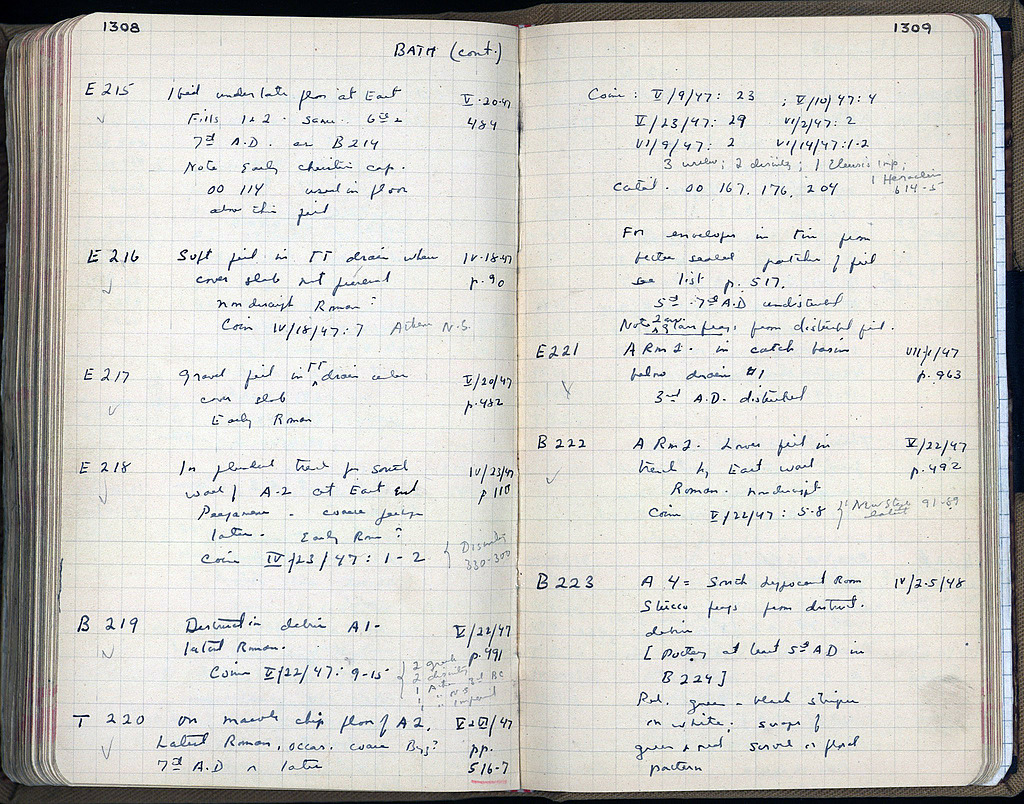 1308
BATH (cont.)
E 215 fill under late floor at East V·20·47
Fills 1+2. Same 6th 484
7th A.D. as B 214
Note Early christian cap.
00 114 used in floor
above this fill
E 216 Soft fill in TT drain where IV·18·47
cover slab not present p. 90
nondescript Roman?
Coin IV/18/47: 7 Athens N.S.
E 217 Gravel fill in TT drain under V/20/47
cover slab p. 482
Early Roman
E 218 In trench for south IV/23/47
wall of A-2 at East end p 110
coarse
later. Early Rom?
Coins IV/23/47: 1-2 { Divinity
330-300
B 219 Destruction debris A1- V/22/47
latest Roman. p. 491
Coins V/22/47: 9-15 { 2 greek
2 divinity
1 Athen 3rd BC
1 " N S
1 " imperial
T 220 on marble chip floor of A2. V+VI/47
Latest Roman, occas. coarse Byz? pp.
7th A.D or later 516-7
1309
Coins: V/9/47: 23 ; V/10/47: 4
V/23/47: 29 VI/2/47: 2
VI/9/47: 2 VI/14/47: 1-2
3 ; 2 divinity; 1 Eleusis imp;
1 Heraclius
614-5
Catal. 00 167, 176, 204
For envelopes in tin from
better sealed patches of fill
see list p. 517.
5th-7th A.D undisturbed
Note 2 env.
glass frags. from disturbed fill.
E 221 A Rm 2. in catch basin VII/1/47
below drain #1 p. 963
3rd A.D. disturbed
B 222 A Rm 2. Lower fill in V/22/47
trench by East wall p. 492
Roman. nondescript
Coins V/22/47: 5-8 { 1 New Style 91-89
B 223 A 4 = South hypocaust Room IV/2-5/48
Stucco frags from destruct.
debris
[Pottery at least 5th AD in
B 224]
Red, green + black stripes
on white; swags of
green + red floral
pattern